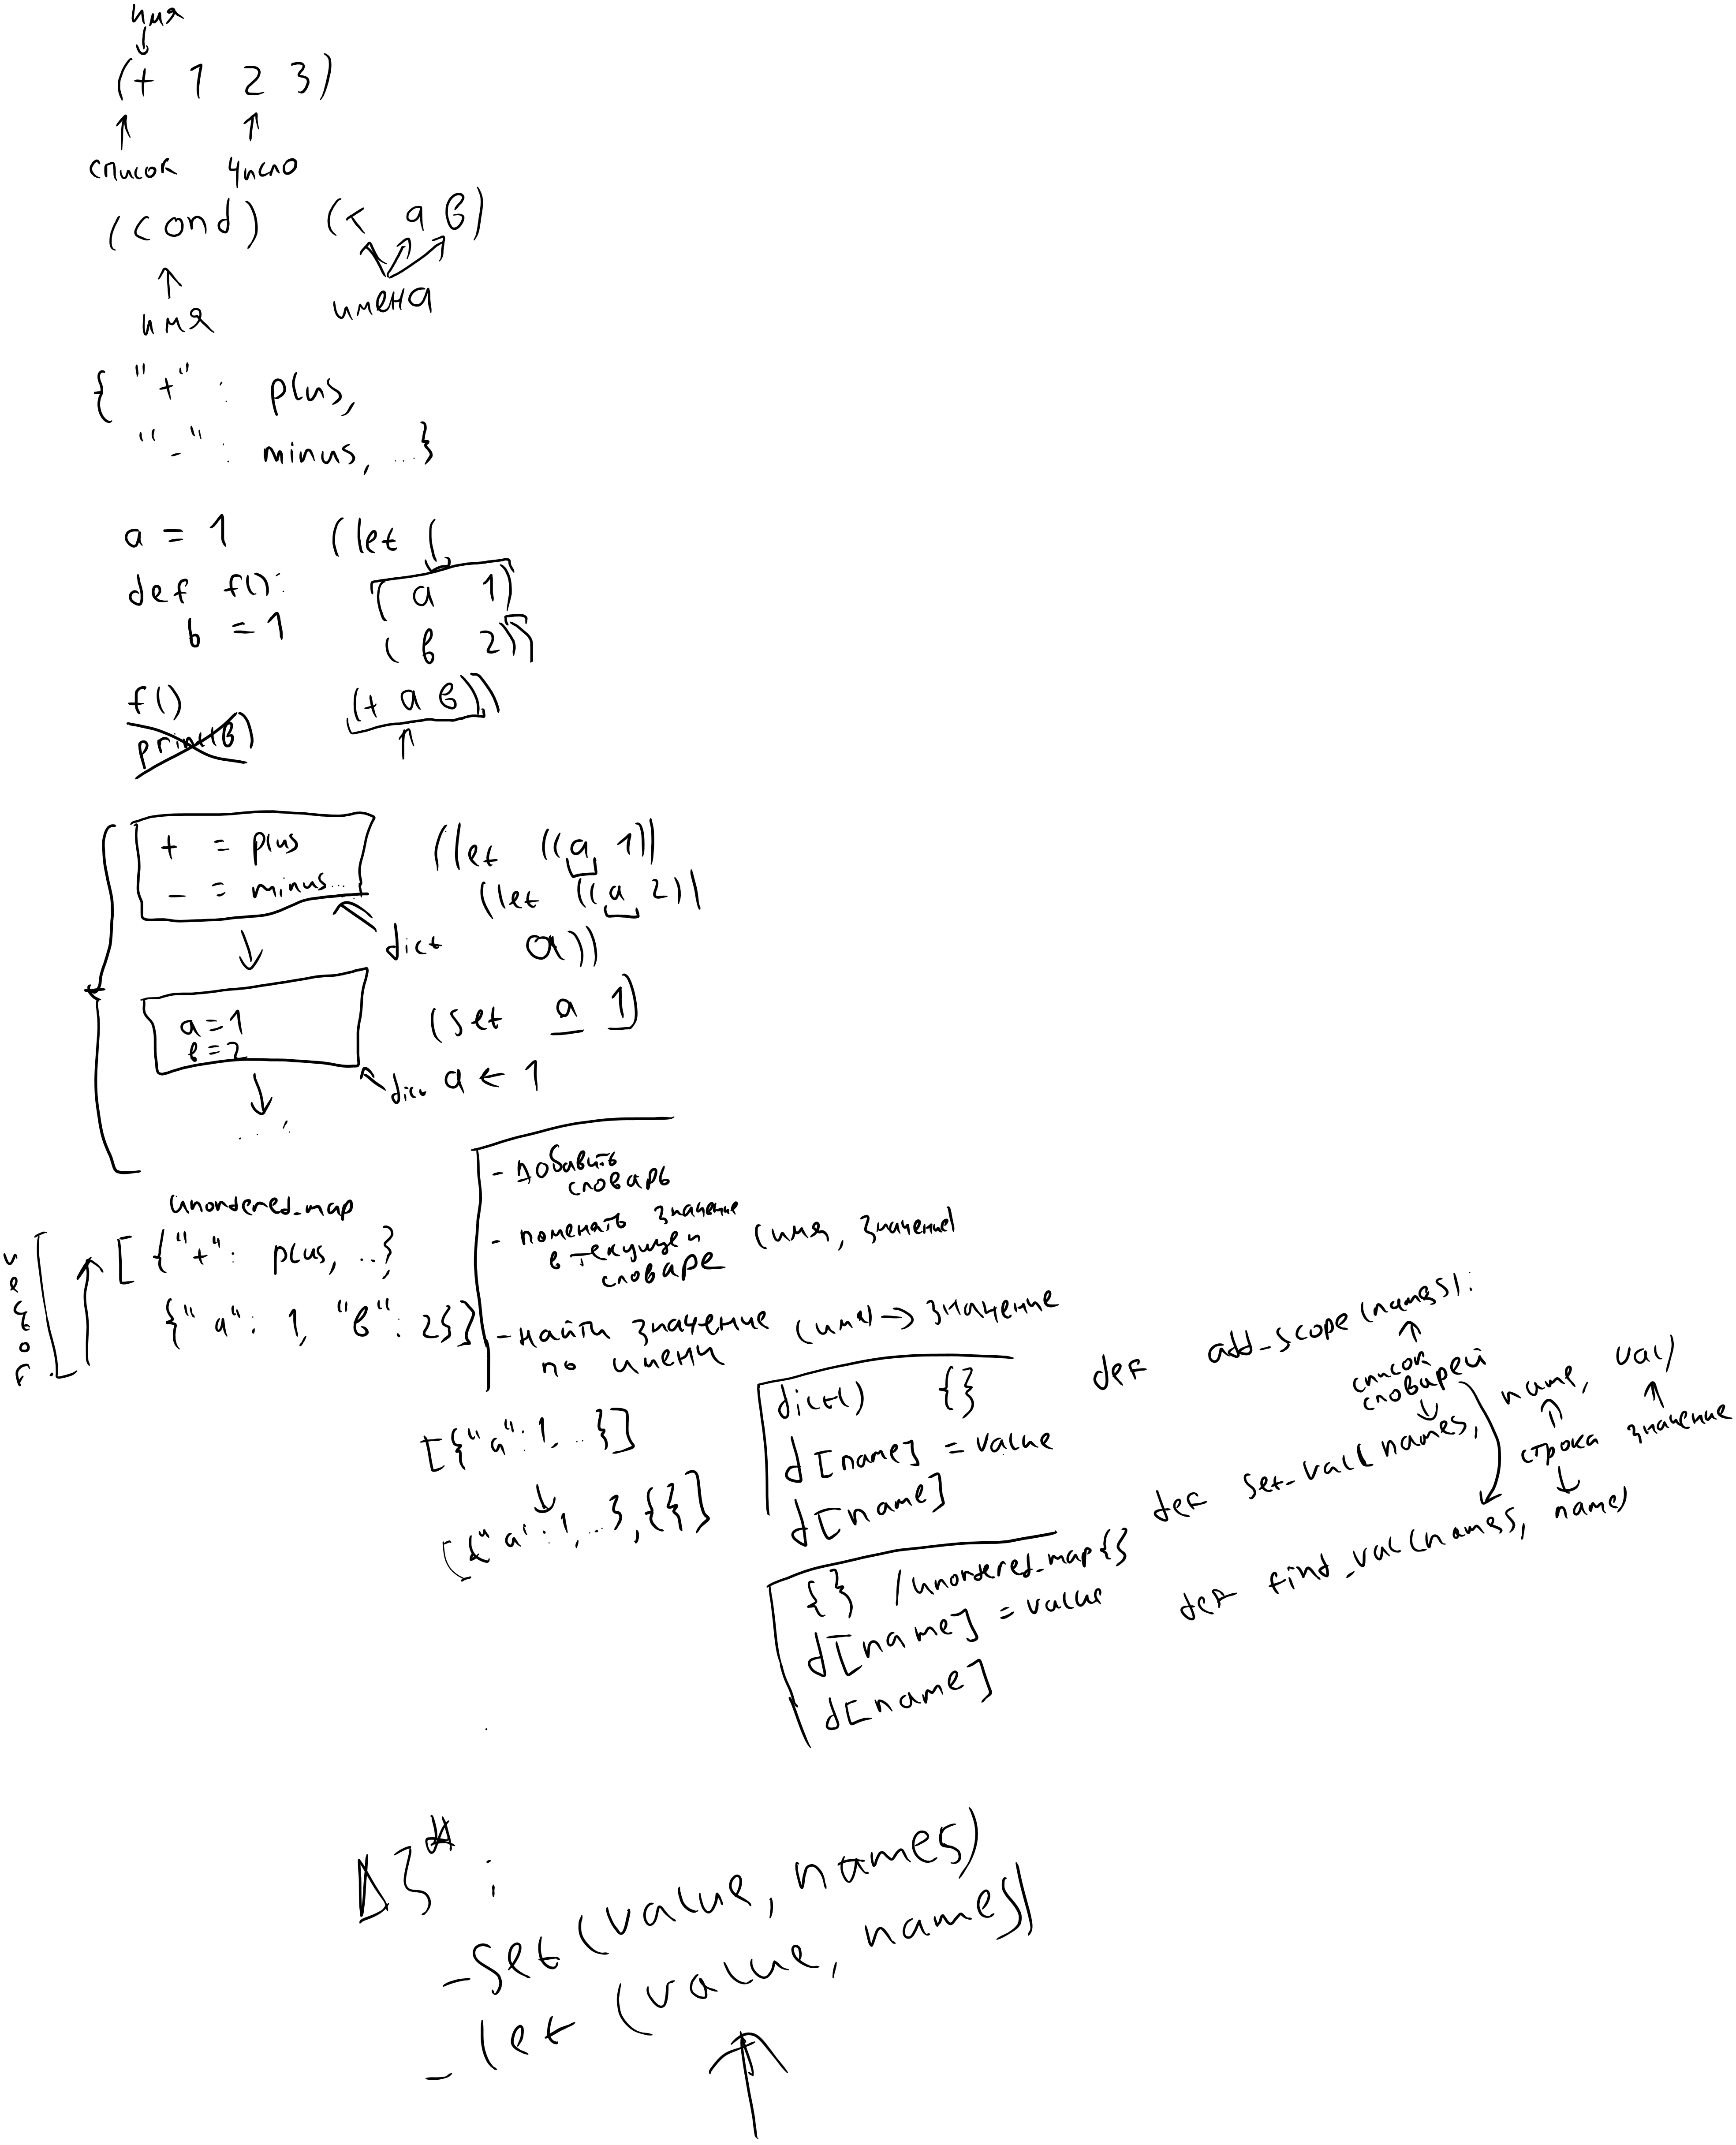 имя
(+ 1 2 3)
список число
(cond) (< a в)
имя имена
{ "+" : plus,
"-" : minus, ...}
a = 1
def f():
b = 1
f()
print(в)
(let (
( a 1)
( в 2))
(+ a в))
+ = plus
- = minus...
dict
a=1
в=2
dict
...
(let ((a 1))
(let ((a 2))
a))
(set a 1)
a ← 1
unordered_map
vector
[ {"+": plus, ..}
{"a": 1, "в": 2}]
- добавить
словарь
- поменять значение
в текущем
словаре
(имя, значение)
- найти значение (имя) -> значение
по имени
[{"a":1, ...}]
[{"a":1, ...}, {}]
dict() {}
d[name] = value
d[name]
{} / unordered_map{}
d[name] = value
d[name]
def add_scope(names):
список
словарей
def set_val(names, name, val)
строка значение
def find_val(names, name)
ДЗ:
- set (value, names)
- let (value, names)